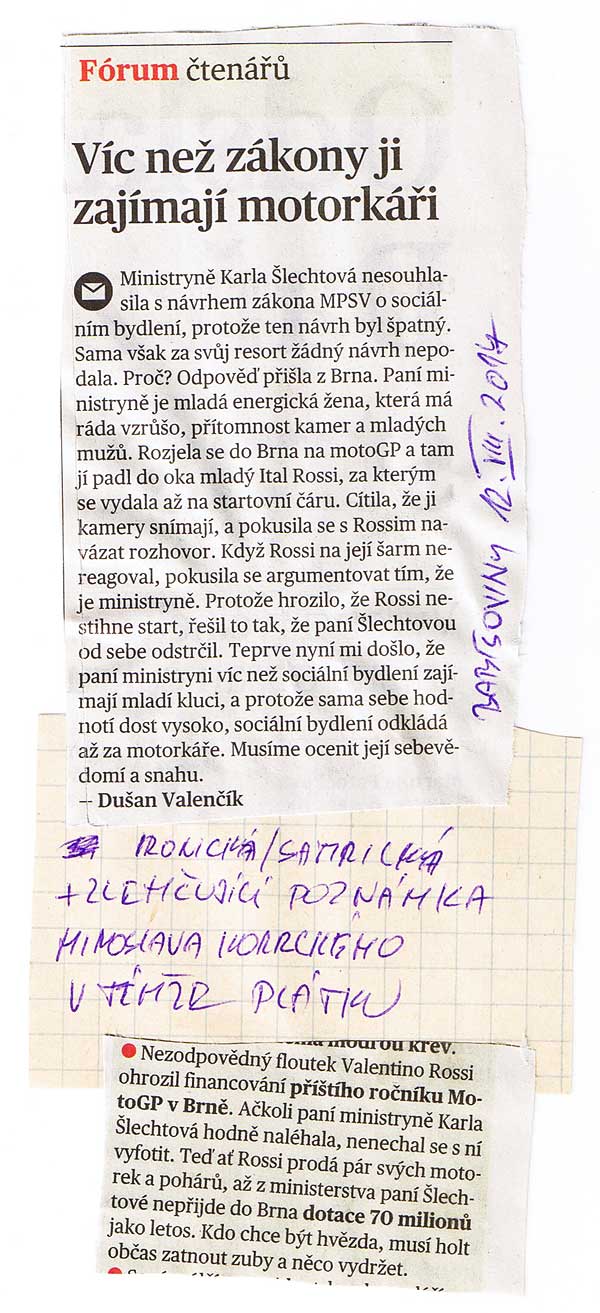 Fórum čtenářů
Víc než zákony ji
zajímají motorkáři
Ministryně Karla Šlechtová nesouhla-
sila s návrhem zákona MPSV o sociál-
ním bydlení, protože ten návrh byl špatný.
Sama však za svůj resort žádný návrh nepo-
dala. Proč? Odpověď přišla z Brna. Paní mi-
nistryně je mladá energická žena, která má
ráda vzrůšo, přítomnost kamer a mladých
mužů. Rozjela se do Brna na motoGP a tam
jí padl do oka mladý Ital Rossi, za kterým
se vydala až na startovní čáru. Cítila, že ji
kamery snímají, a pokusila se s Rossim na-
vázat rozhovor. Když Rossi na její šarm ne-
reagoval, pokusila se argumentovat tím, že
je ministryně. Protože hrozilo, že Rossi ne-
stihne start, řešil to tak, že paní Šlechtovou
od sebe odstrčil. Teprve nyní mi došlo, že
paní ministryni víc než sociální bydlení zají-
mají mladí kluci, a protože sama sebe hod-
notí dost vysoko, sociální bydlení odkládá
až za motorkáře. Musíme ocenit její sebevě-
domí a snahu.
— Dušan Valenčík
BABIŠOVINY 12. VIII. 2017
IRONICKÁ/SATIRICKÁ
+ ZLEHČUJÍCÍ POZNÁMKA
MIROSLAVA KORECKÉHO
V TÉMŽE PLÁTKU
modrou krev.
Nezodpovědný floutek Valentino Rossi
ohrozil financování příštího ročníku Mo-
toGP v Brně. Ačkoli paní ministryně Karla
Šlechtová hodně naléhala, nenechal se s ní
vyfotit. Teď ať Rossi prodá pár svých moto-
rek a pohárů, až z ministerstva paní Šlech-
tové nepřijde do Brna dotace 70 milionů
jako letos. Kdo chce být hvězda, musí holt
občas zatnout zuby a něco vydržet.